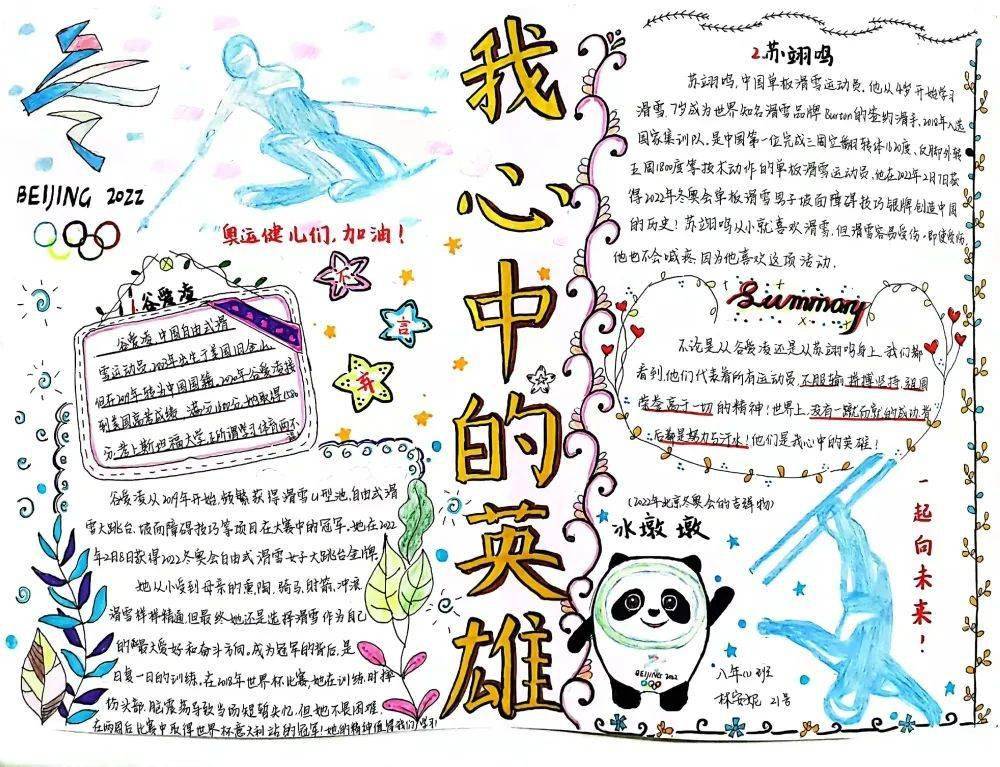 BEIJING 2022
奥运健儿们,加油!
不
言
弃
1.谷爱凌
谷爱凌,中国自由式滑
雪运动员,2003年出生于美国旧金山,
但在2019年转为中国国籍,2020年谷爱凌接
到美国高考成绩,满分1600分,她取得1580
分,考上斯坦福大学
谷爱凌从2019年开始,频繁获得滑雪U型池,自由式滑
雪大跳台,坡面障碍技巧等项目在大赛中的冠军,她在2022
年2月8日获得2022冬奥会自由式滑雪女子大跳台金牌.
她从小受到母亲的熏陶,骑马,射箭,冲浪
滑雪样样精通,但最终她还是选择滑雪作为自己
的最大爱好和奋斗方向。成为冠军的背后,是
日复一日的训练,在2018年世界杯比赛,她在训练时摔
伤头部,脑震荡导致当场短暂失忆,但她不畏困难,
在两周后比赛中取得世界杯意大利站的冠军!她的精神值得我们学习!
我心中的英雄
2.苏翊鸣
苏翊鸣,中国单板滑雪运动员,他从4岁开始学习
滑雪,7岁成为世界知名滑雪品牌Burton的签约滑手,2018年入选
国家集训队,是中国第一位完成三周空翻转体1620度、反脚外转
五周1800度等技术动作的单板滑雪运动员,他在2022年2月7日获
得2022年冬奥会单板滑雪男子坡面障碍技巧银牌创造中国
的历史!苏翊鸣从小就喜欢滑雪,但滑雪容易受伤,即使受伤,
他也不会喊疼,因为他喜欢这项活动.
Summary
不论是从谷爱凌还是从苏翊鸣身上,我们都
看到,他们代表着所有运动员,不服输,拼搏坚持,祖国
荣誉高于一切的精神!世界上,没有一蹴而就的成功,背
后都是努力与汗水!他们是我心中的英雄!
(2022年北京冬奥会的吉祥物)
冰墩墩
BEIJING 2022
一起向未来!
八年(1)班
林安妮 21号